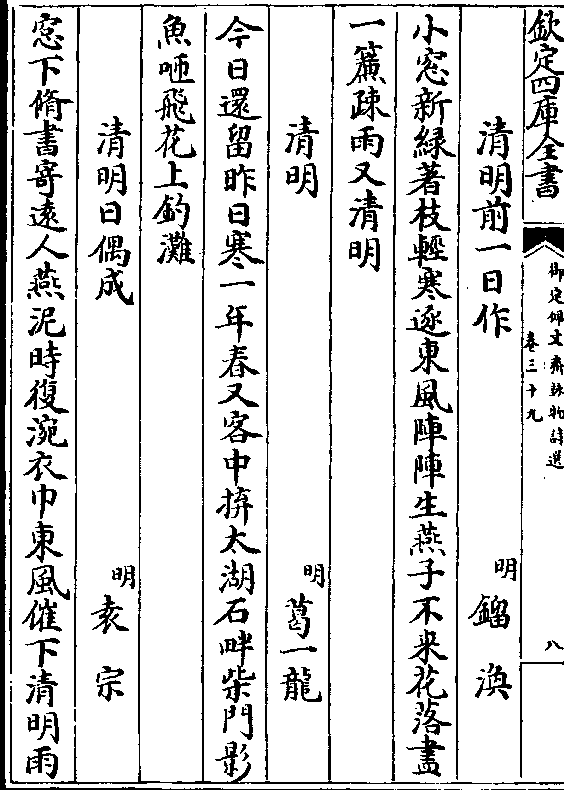 欽定四庫全書
御定佩文齋詠物詩選
卷三十九
八
清明前一日作
明
鎦渙
小窓新綠著枝輕寒逐東風陣陣生燕子不来花落盡
一簾疎雨又清明
清明
明
葛一龍
今日還留昨日寒一年春又客中拚太湖石畔柴門影
魚咂飛花上釣灘
清明日偶成
明
袁宗
窓下脩書寄遠人燕泥時復涴衣巾東風催下清明雨